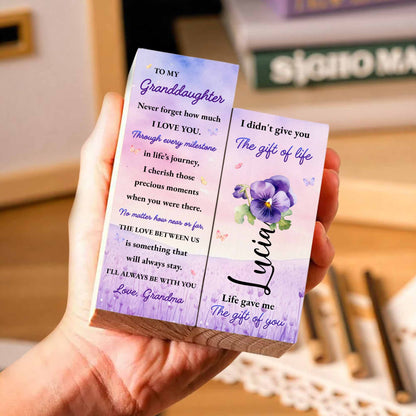 TO MY
Granddaughter
Never forget how much
I LOVE YOU.
Through every milestone
in life's journey,
I cherish those
precious moments
when you were there.
No matter how near or far,
THE LOVE BETWEEN US
is something that
will always stay.
I'LL ALWAYS BE WITH YOU
Love, Grandma
I didn't give you
The gift of life
Lucia
Life gave me
The gift of you